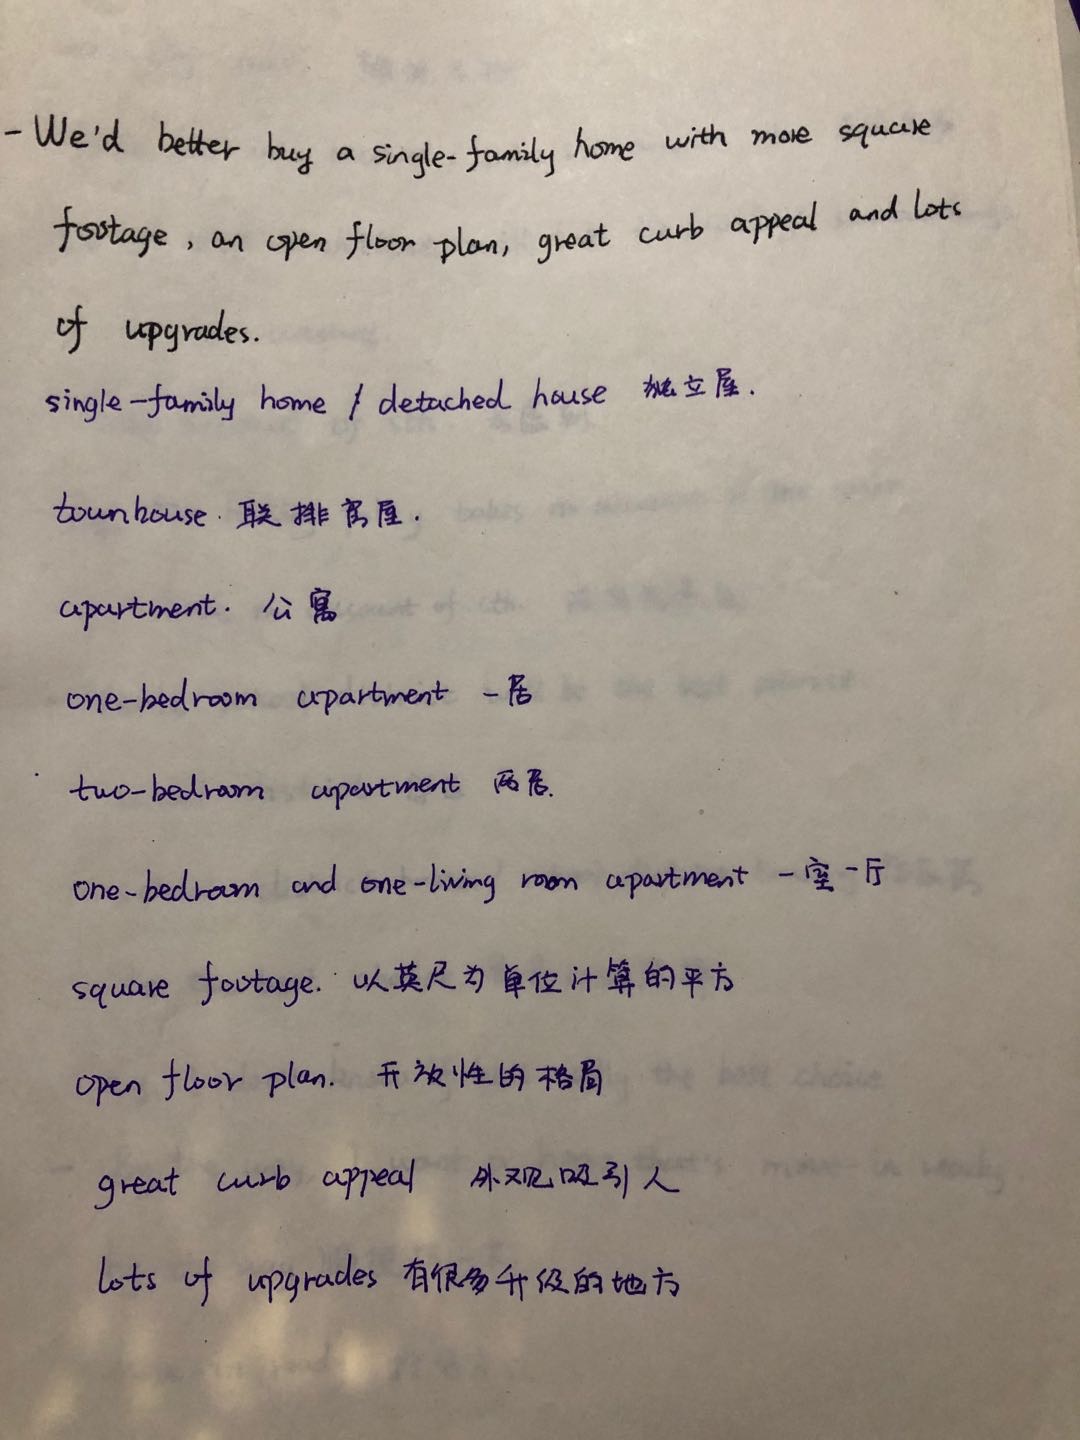 - We'd better buy a single-family home with more square
footage, an open floor plan, great curb appeal and lots
of upgrades.
single-family home / detached house 独立屋.
townhouse. 联排房屋.
apartment. 公寓
one-bedroom apartment 一居
two-bedroom apartment 两居.
one-bedroom and one-living room apartment 一室一厅
square footage. 以英尺为单位计算的平方
open floor plan. 开放性的格局
great curb appeal 外观吸引人
lots of upgrades 有很多升级的地方